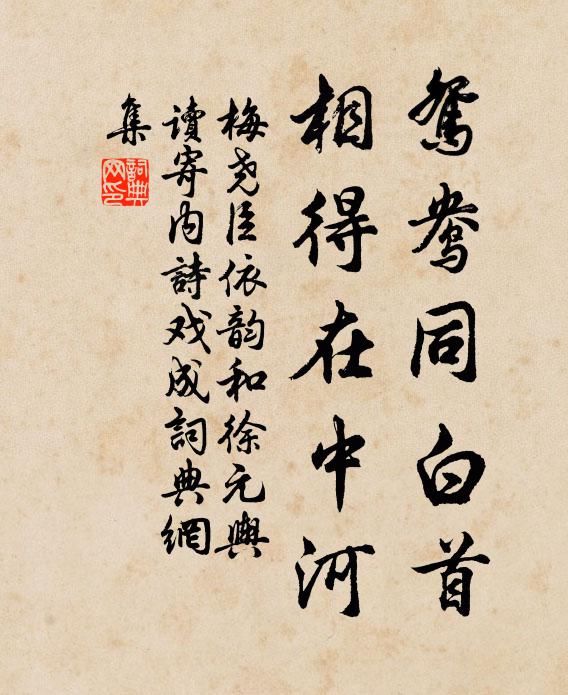 鴛鴦同白首
相得在中河
梅尧臣依韵和徐元輿
讀寄内詩戏成詞典網
集
詞典
网印